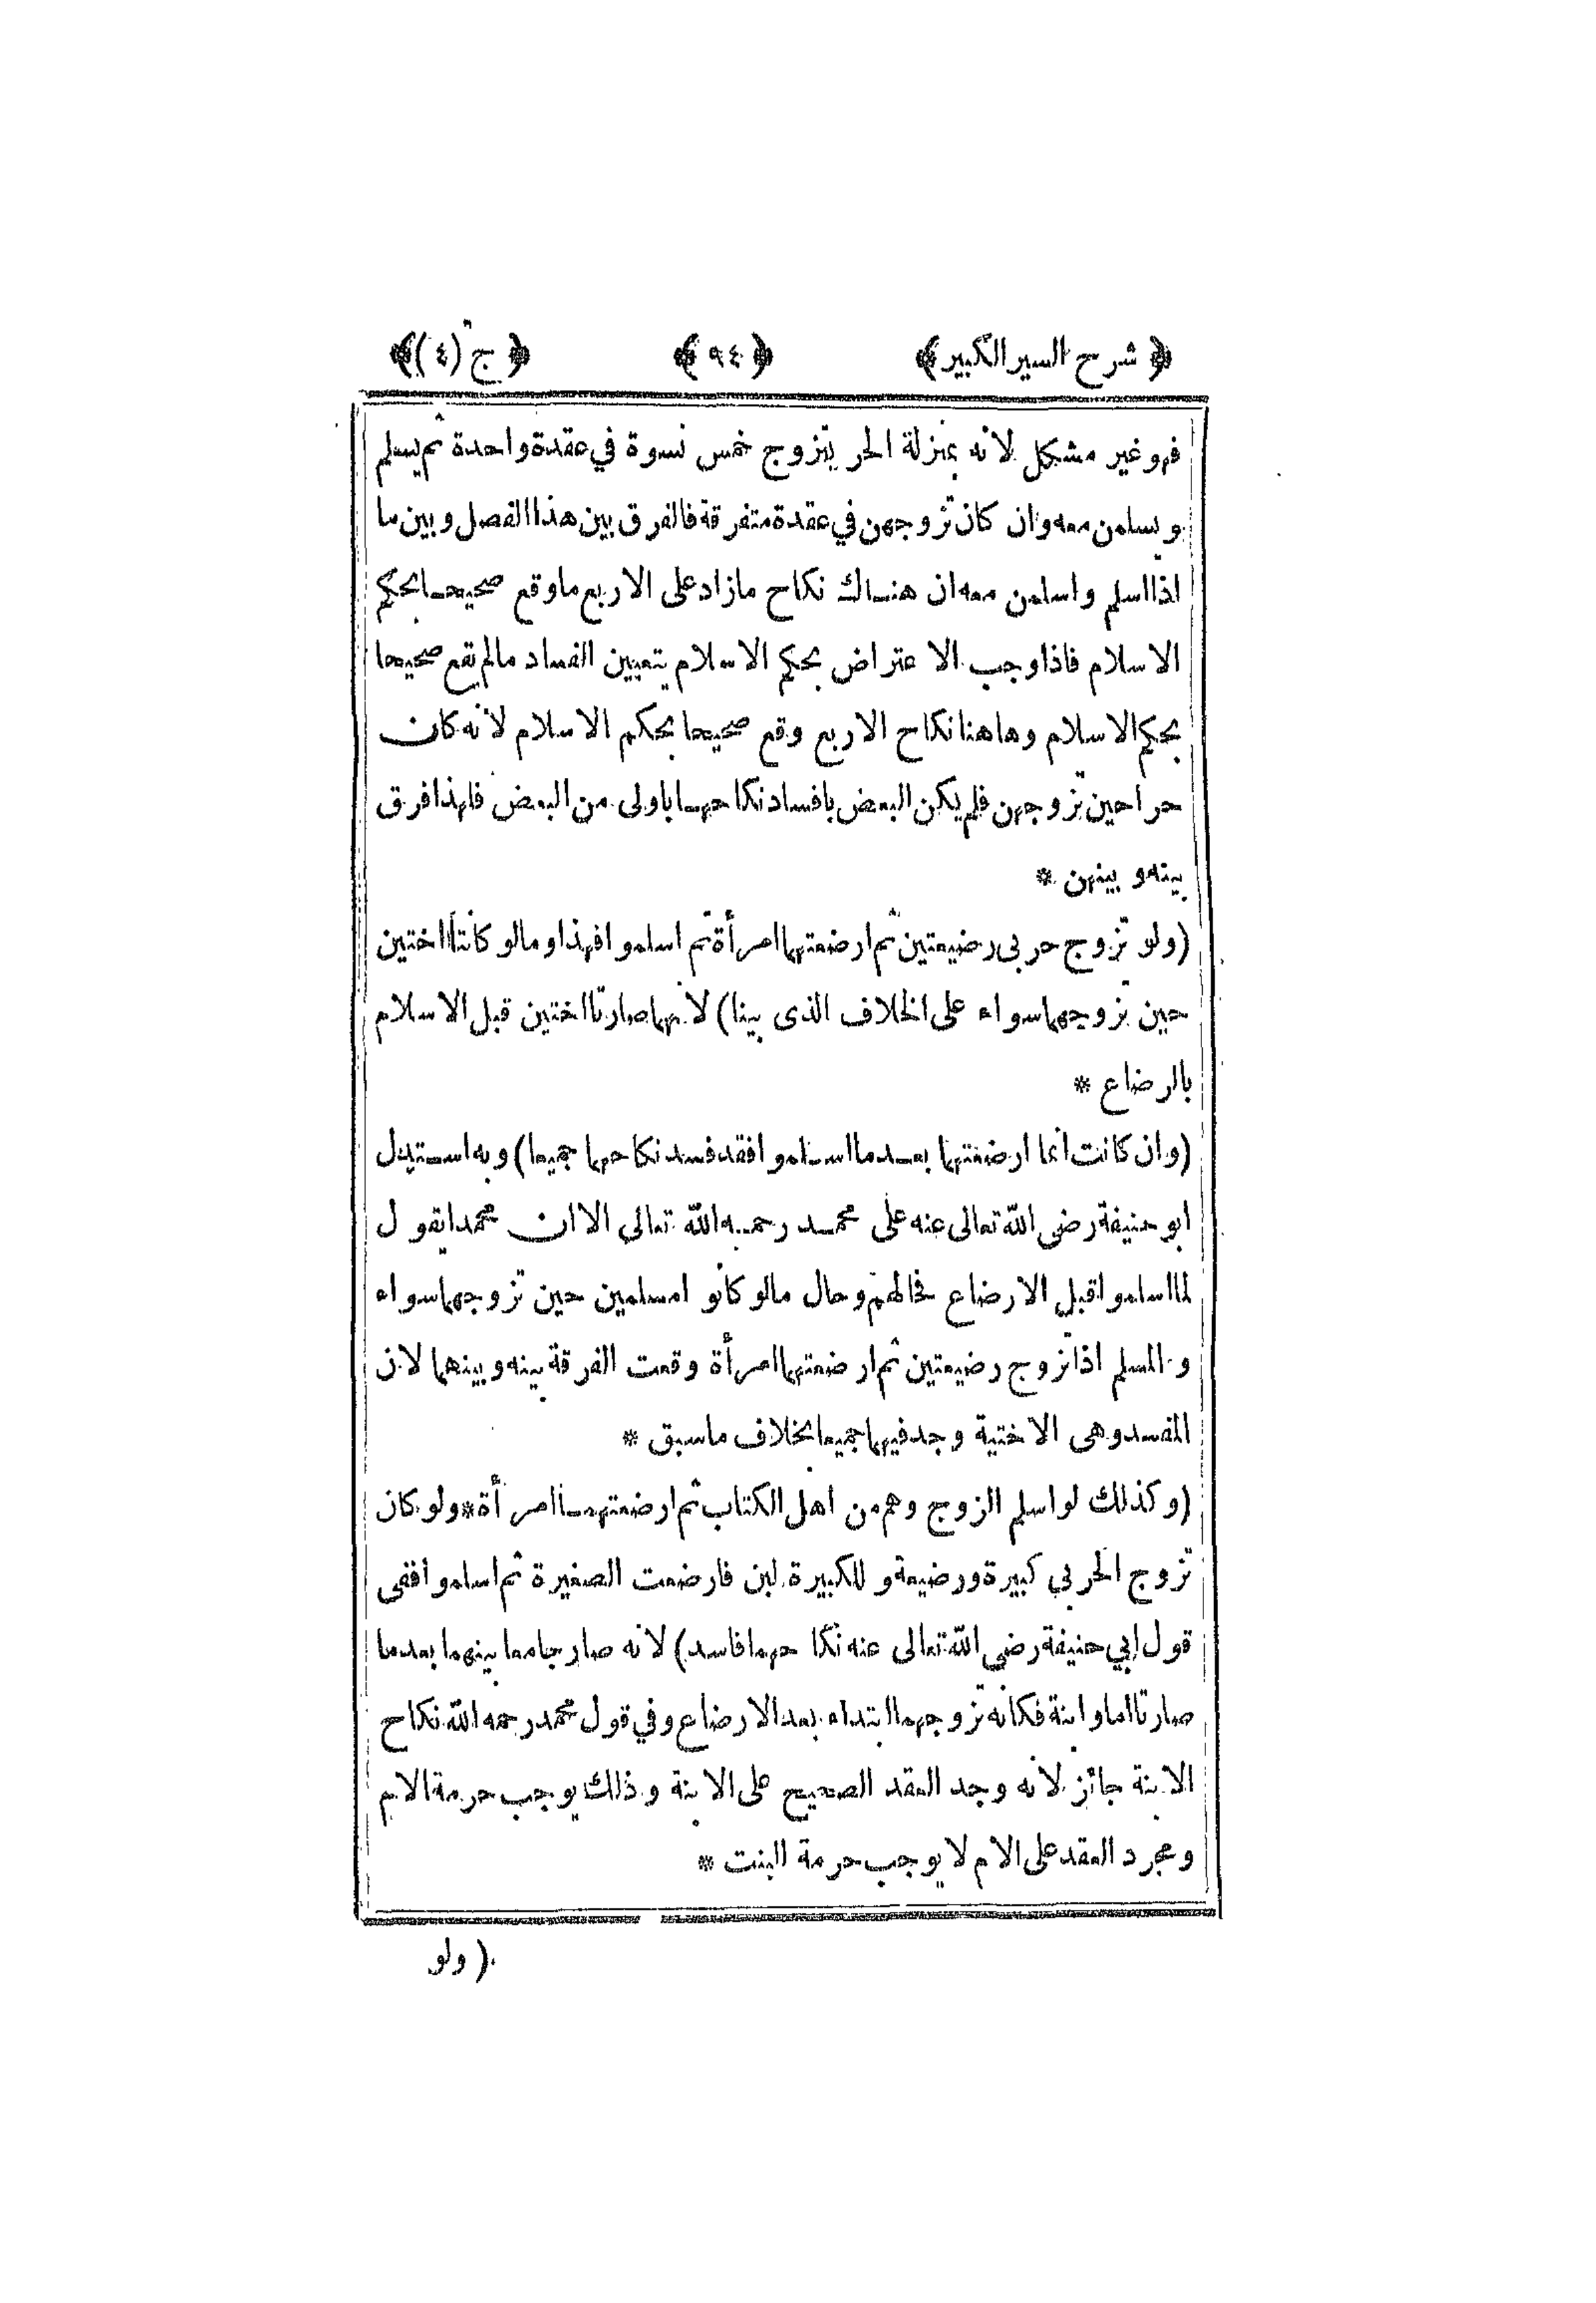 ﴿ شرح السير الكبير ﴾ ﴿ ٩٤ ﴾ ﴿ ج (٤) ﴾
فهو غير مشكل لانه بمنزلة الحر يتزوج خمس نسوة في عقدة واحدة ثم يسلم
ويسلمن معه وان كان تزوجهن في عقدة متفرقة فالفرق بين هذا الفصل وبين ما
اذا اسلم واسلمن معه ان هنـاك نكاح مازاد على الاربع ماوقع صحيحـا بحكم
الاسلام فاذا وجب الاعتراض بحكم الاسلام يتعيين الفساد مالم يقع صحيحا
بحكم الاسلام وهاهنا نكاح الاربع وقع صحيحا بحكم الاسلام لانه كان
حرا حين تزوجهن فلم يكن البعض بافساد نكاحهـا باولى من البعض فلهذا فرق
بينه وبينهن *
(ولو تزوج حربي رضيعتين ثم ارضعتهما امرأة ثم اسلموا فهذا ومالو كانتا اختين
حين تزوجهما سواء على الخلاف الذى بينا) لانهما صارتا اختين قبل الاسلام
بالرضاع *
(وان كانت انما ارضعتهما بعـد ما اسـلموا فقد فسد نكاحهما جميعا) وبه اسـتدل
ابو حنيفة رضى الله تعالى عنه على محمـد رحمـه الله تعالى الا ان محمدا يقول
لما اسلموا قبل الارضاع فحالهم وحال مالو كانوا مسلمين حين تزوجهما سواء
والمسلم اذا تزوج رضيعتين ثم ارضعتهما امرأة وقعت الفرقة بينه وبينهما لان
المفسد وهى الاختية وجد فيهما جميعا بخلاف ماسبق *
(وكذلك لو اسلم الزوج وهم من اهل الكتاب ثم ارضعتهمـا امرأة * ولو كان
تزوج الحربي كبيرة ورضيعة وللكبيرة لبن فارضعت الصغيرة ثم اسلموا ففى
قول ابي حنيفة رضى الله تعالى عنه نكاحهما فاسد) لانه صار جامعا بينهما بعدما
صارتا اما وابنة فكانه تزوجهما ابتداء بعد الارضاع وفي قول محمد رحمه الله نكاح
الابنة جائز لانه وجد العقد الصحيح على الابنة وذلك يوجب حرمة الام
ومجرد العقد على الام لا يوجب حرمة البنت *
( ولو